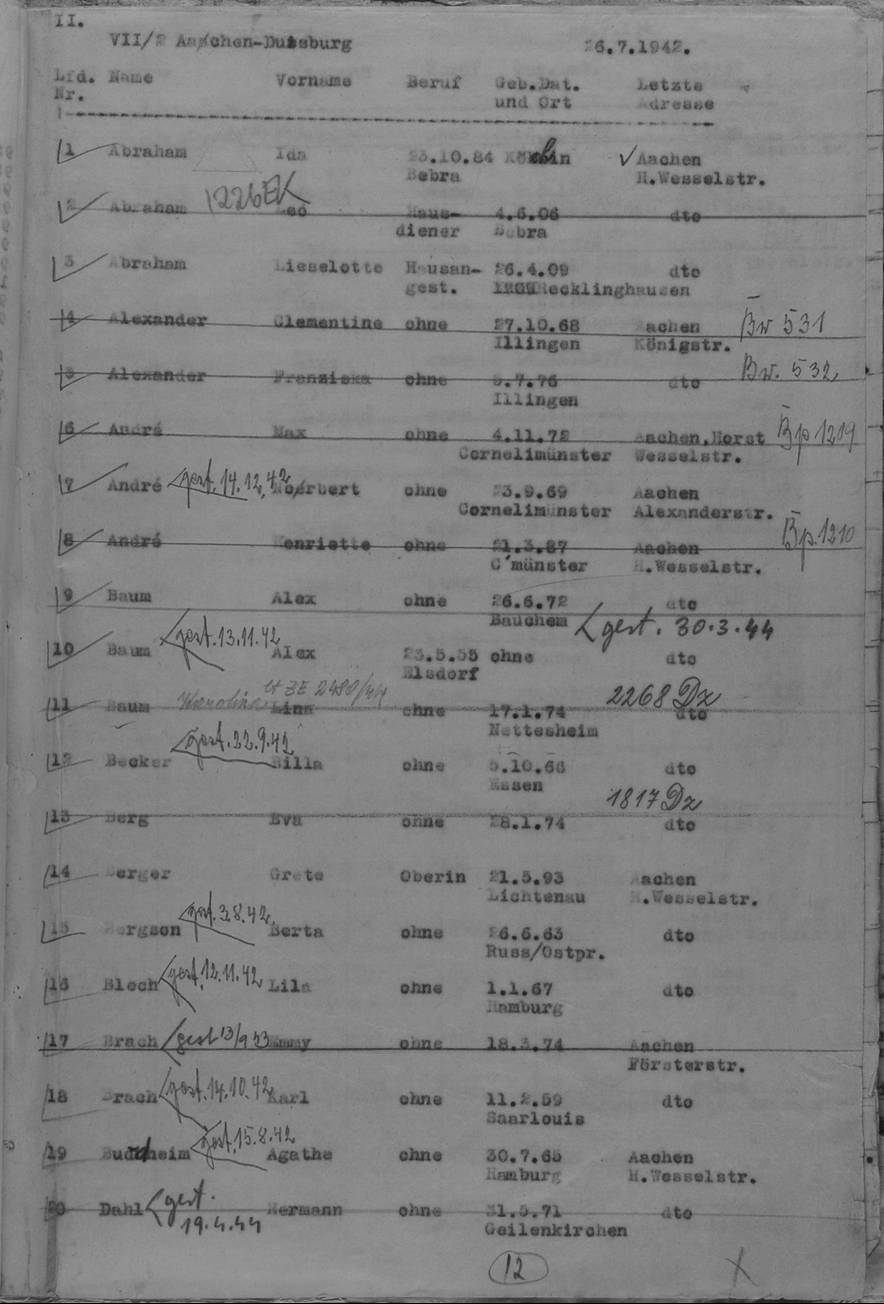 II.
VII/2 Aachen-Duisburg 26.7.1942.
Lfd. Name Vorname Beruf Geb.Dat. Letzte
Nr. und Ort Adresse
1 Abraham Ida 23.10.84 Aachen
Bebra H.Wesselstr.
1226 EK
2 Abraham Leo Haus- 4.6.06 dto
diener Bebra
3 Abraham Lieselotte Hausan- 26.4.09 dto
gest. Recklinghausen
4 Alexander Clementine ohne 27.10.68 Aachen Bw 531
Illingen Königstr.
5 Alexander Franziska ohne 5.7.76 dto Bw. 532
Illingen
6 André Max ohne 4.11.72 Aachen,Horst Bp 1209
Cornelimünster Wesselstr.
7 André gest. 14.12.42 Norbert ohne 23.9.69 Aachen
Cornelimünster Alexanderstr.
8 André Henriette ohne 21.3.87 Aachen Bp.1210
C'münster H.Wesselstr.
9 Baum Alex ohne 26.6.72 dto
Bauchem gest. 30.3.44
10 Baum gest. 13.11.42 Alex 23.5.55 ohne dto
Elsdorf
11 Baum Karolina lt ZE 2480/44 Lina ohne 17.1.74 2268 Dz dto
Nettesheim
12 Becker gest. 22.9.42 Billa ohne 5.10.66 dto
Essen
1817 Dz
13 Berg Eva ohne 28.1.74 dto
14 Berger Grete Oberin 21.5.93 Aachen
Lichtenau H.Wesselstr.
15 Bergson gest. 3.8.42 Berta ohne 26.6.63 dto
Russ/Ostpr.
16 Blech gest. 12.11.42 Lila ohne 1.1.67 dto
Hamburg
17 Brach gest 13/9 43 Emmy ohne 18.3.74 Aachen
Försterstr.
18 Brach gest. 14.10.42 Karl ohne 11.2.59 dto
Saarlouis
19 Buchheim gest. 15.8.42 Agathe ohne 30.7.65 Aachen
Hamburg H.Wesselstr.
20 Dahl gest. 19.4.44 Hermann ohne 31.5.71 dto
Geilenkirchen
12